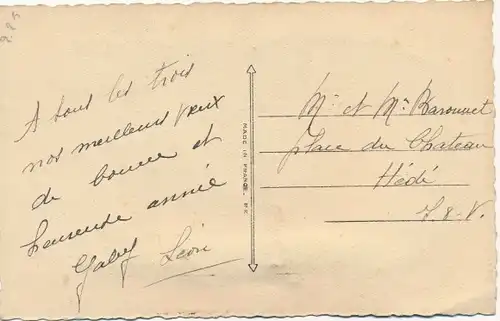 A tous les trois
nos meilleurs vœux
de bonne et
heureuse année
Gaby Léon
MADE IN FRANCE. PK
Mr et Me Baronnet
place du Chateau
Hédé
I-&-V.